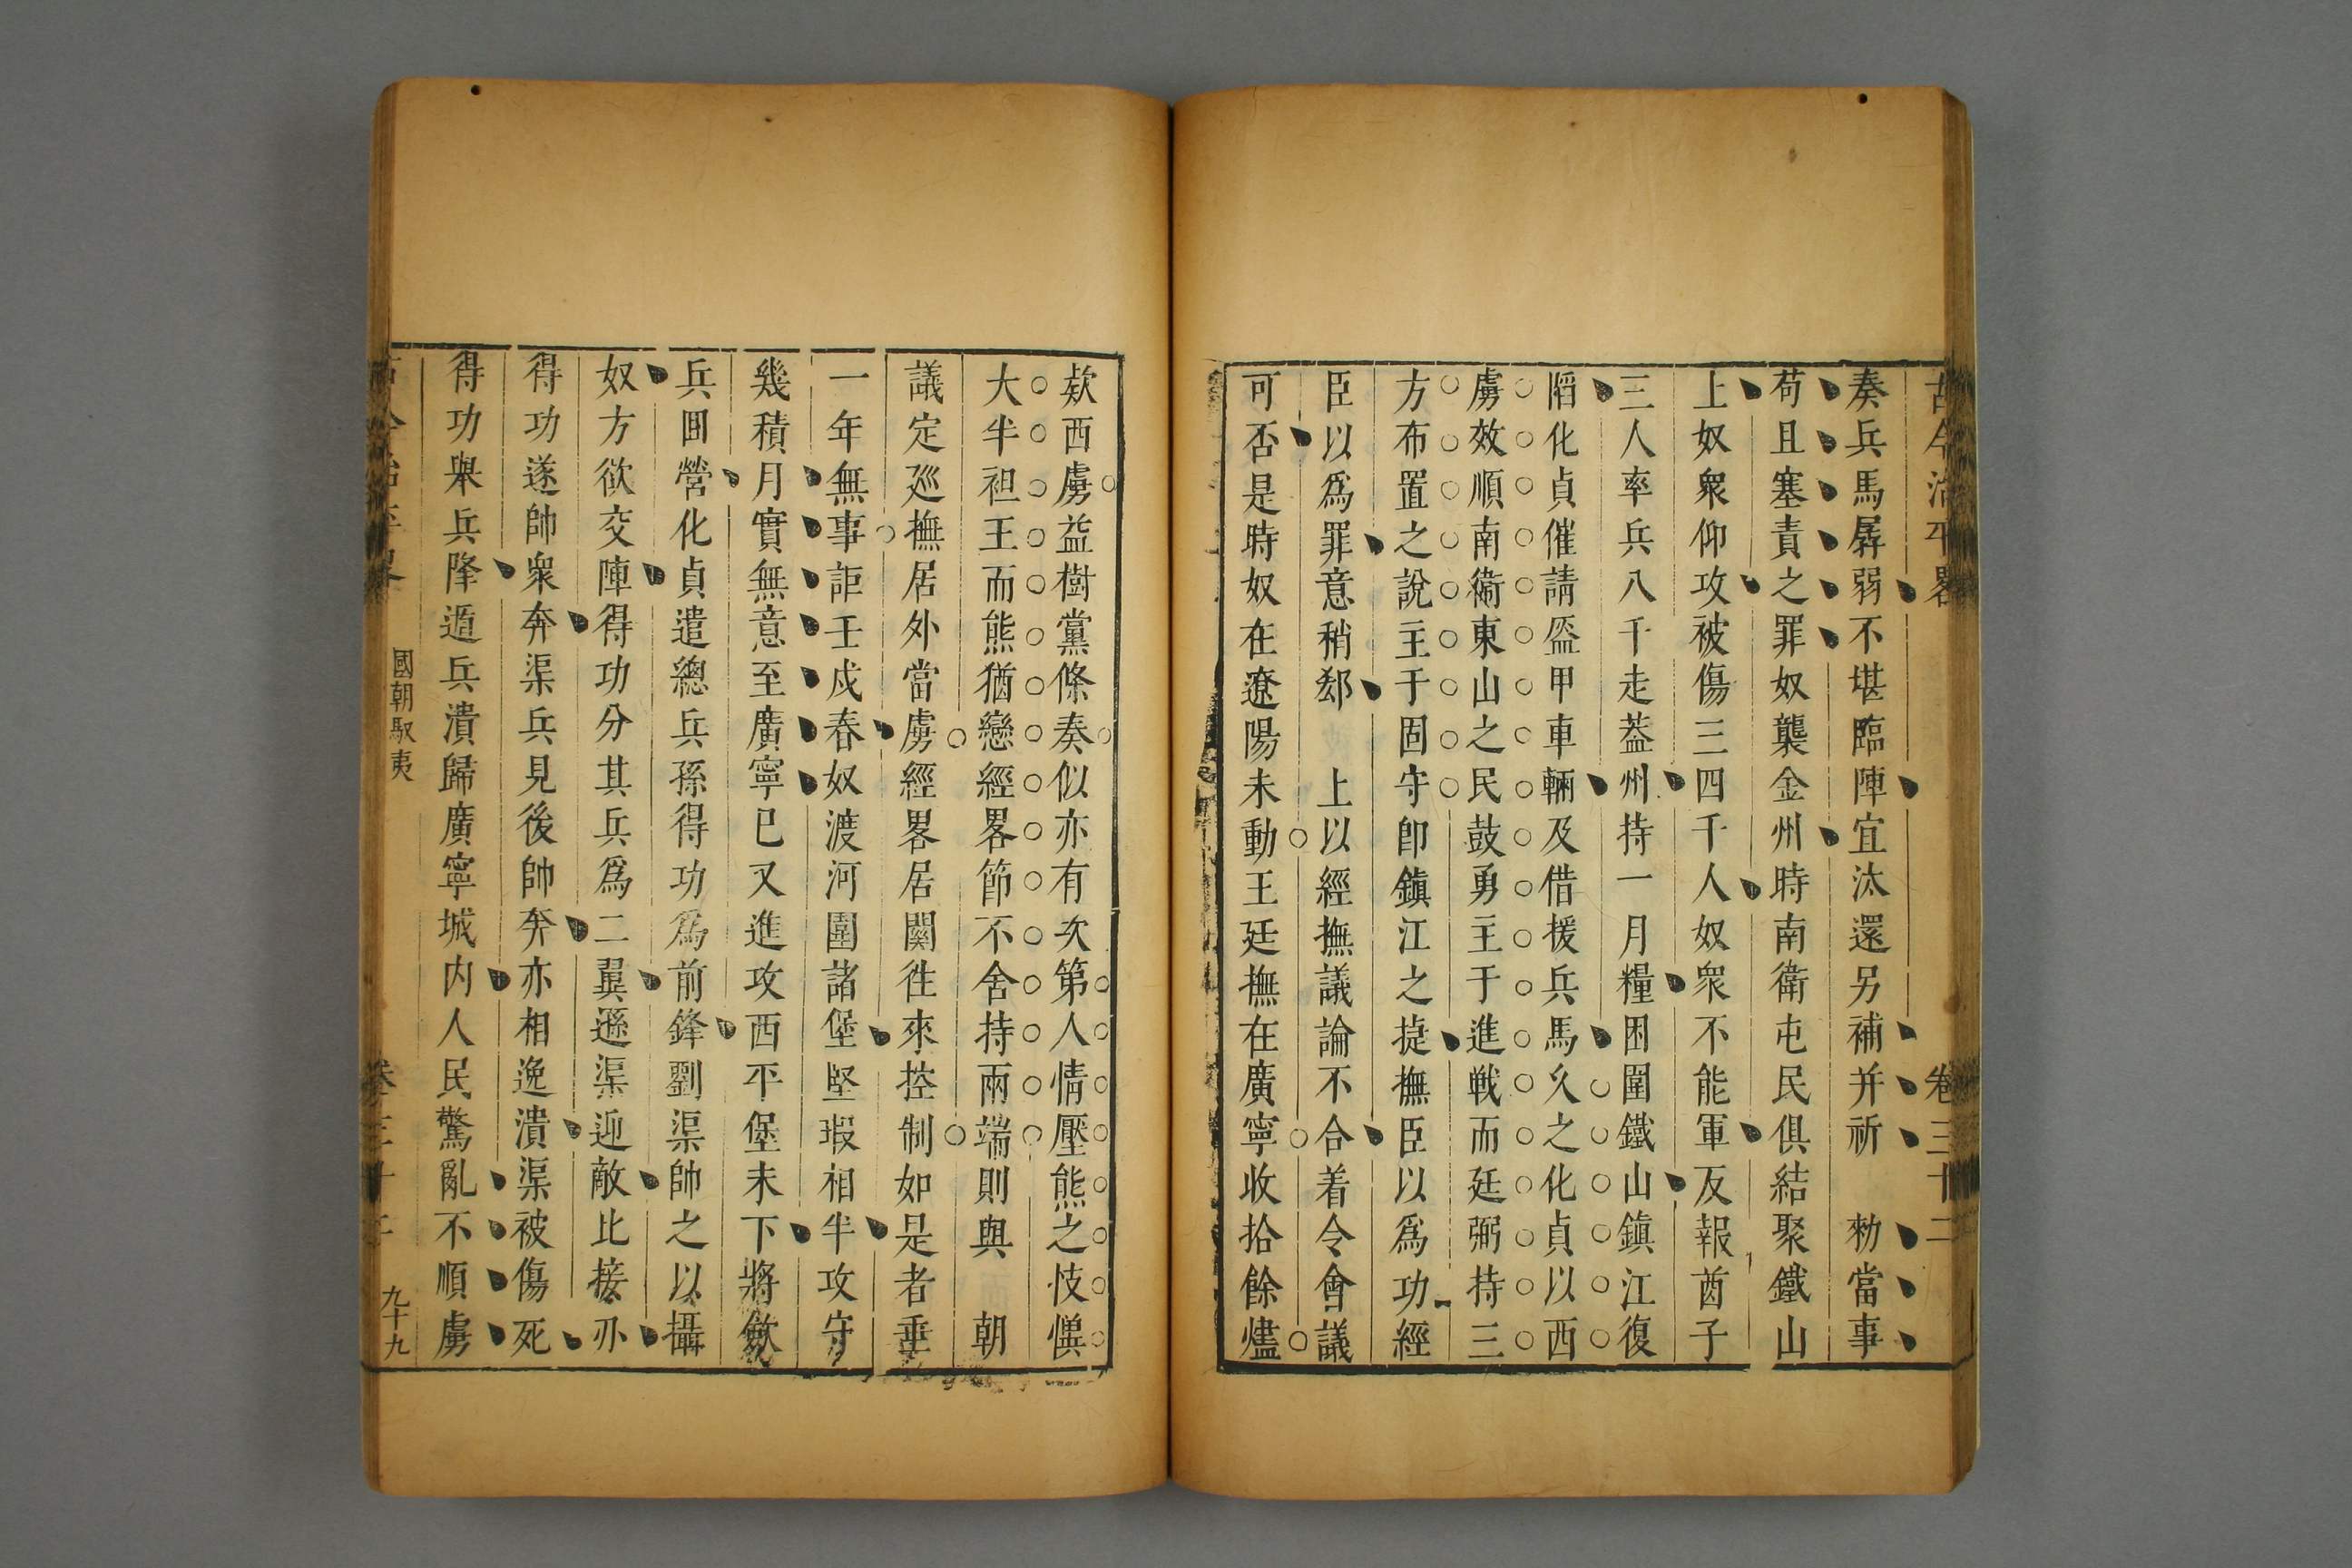 古今治平畧 卷三十二
奏兵馬孱弱不堪臨陣宜汰還另補并祈 勑當事
苟且塞責之罪奴襲金州時南衛屯民俱結聚鐵山
上奴衆仰攻被傷三四千人奴衆不能軍反報酋子
三人率兵八千走葢州持一月糧困圍鐵山鎮江復
䧟化貞催請盔甲車輛及借援兵馬久之化貞以西
虜效順南衛東山之民鼓勇主于進戰而廷弼持三
方布置之說主于固守卽鎮江之㨗撫臣以爲功經
臣以爲罪意稍郄 上以經撫議論不合着令會議
可否是時奴在遼陽未動王廷撫在廣寧收拾餘燼
欵西虜益樹黨條奏似亦有次第人情壓熊之忮惧
大半袒王而熊猶戀經畧節不舍持兩端則與 朝
議定廵撫居外當虜經畧居關徃來控制如是者垂
一年無事詎壬戌春奴渡河圍諸堡堅瑕相半攻守
幾積月實無意至廣寧已又進攻西平堡未下將歛
兵囬營化貞遣總兵孫得功爲前鋒劉渠帥之以攝
奴方欲交陣得功分其兵爲二翼遜渠迎敵比接刃
得功遂帥衆奔渠兵見後帥奔亦相逸潰渠被傷死
得功舉兵降遁兵潰歸廣寧城内人民驚亂不順虜
古今治平畧 國朝馭夷 卷三十二 九十九